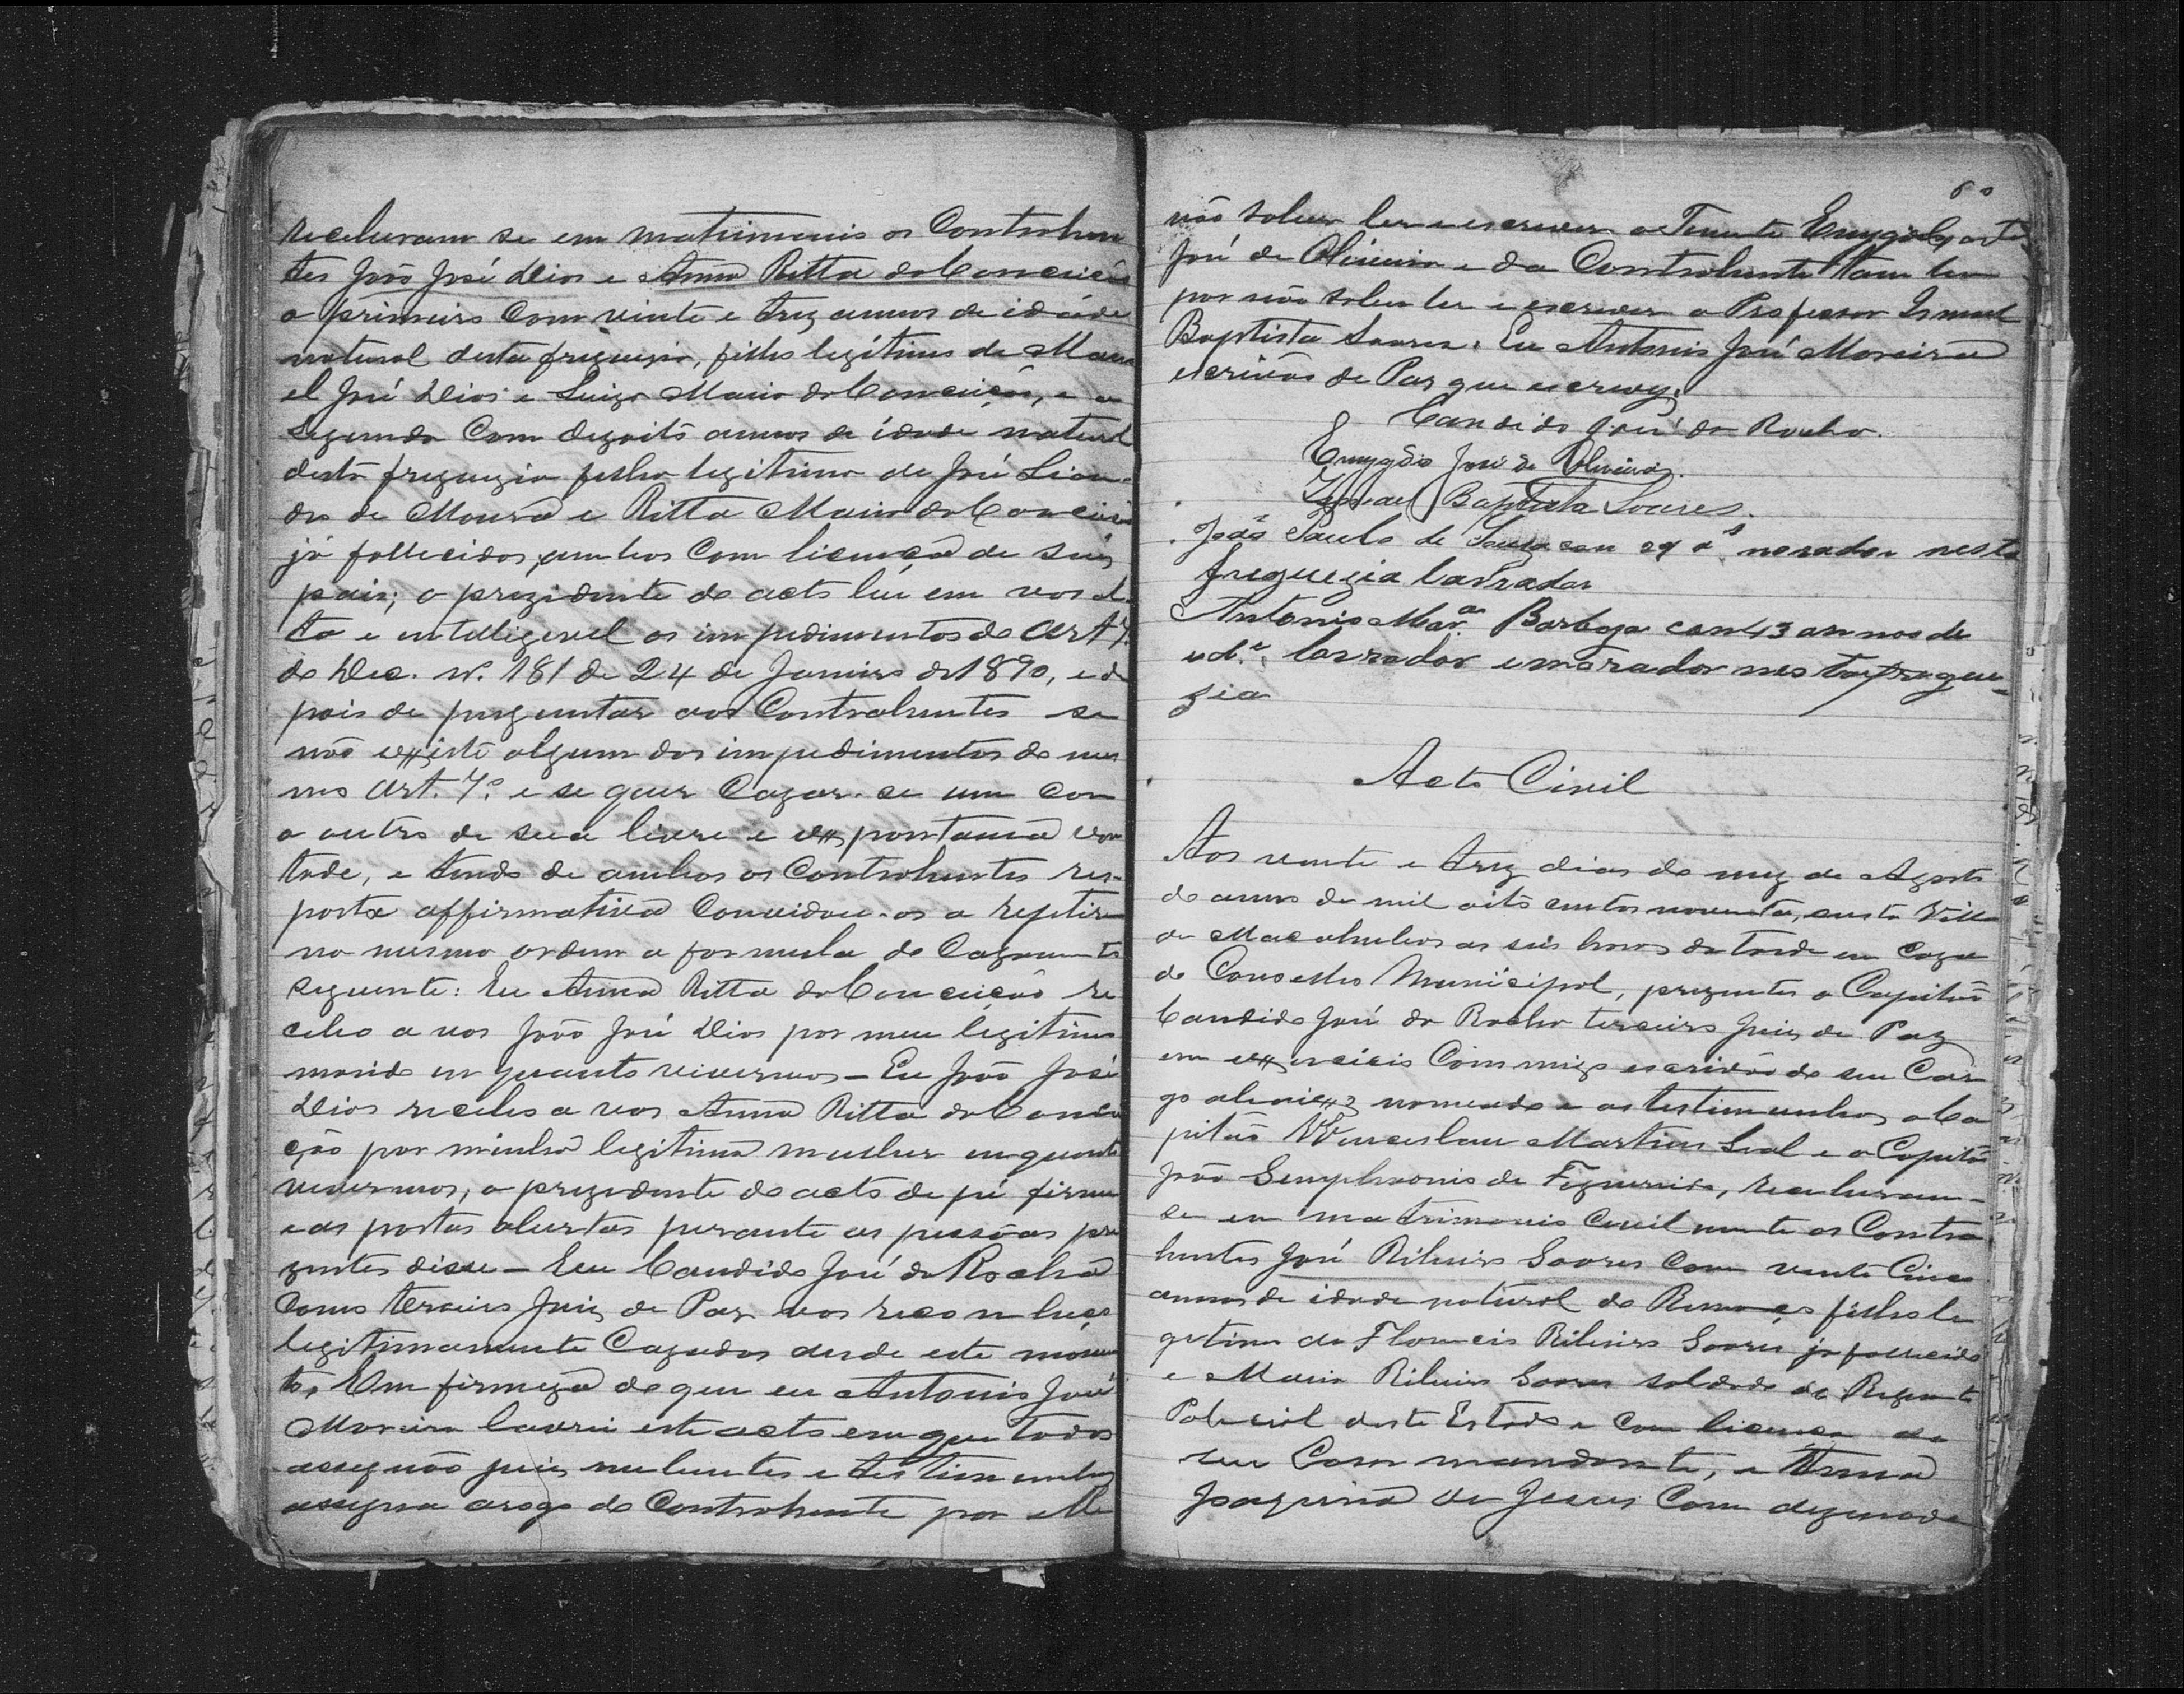 receberam se em matrimonio os Contrahen
tes João José Dias e Anna Ritta da Conceição
o primeiro Com vinte e trez annos de idade
natural desta freguezia, filho legitimo de Mano
el José Dias e Luiza Maria da Conceição, e a
segunda Com dezoito annos de idade natural
desta freguezia filha legitima de José Lian
dro de Moura e Ritta Maria da Conceição
já fallecidos, ambos Com licença de seus
pais; o prezidente do acto leu em vos al
ta e intelligevel os impedimentos do Art 7.
do Dec. N. 181 de 24 de Janeiro de 1890, e de
pois de preguntar aos Contrahentes se
não existe algum dos impedimentos do mes
mo Art. 7º e se quer Cazar-se um com
o outro de sua livre e expontania von
tade, e tendo de ambos os Contrahentes res-
posta affirmativa Convidou-os a repitirem
na mesma ordem a formula do Cazamento
seguinte: Eu Anna Ritta da Conceição re
cebo a vos João José Dias por meu legitimo
marido em quanto vivermos - Eu João José
Dias recebo a vos Anna Ritta da Concei
ção por minha legitima mulher enquanto
vivermos, o prezidente do acto de pé firme
e as portas abertas perante as pessôas pre
zentes disse - Eu Candido José da Rocha
Como terceiro Juiz de Paz vos reconheço
legitimamente Cazados desde este momen
to. Em firmeza do que eu Antonio José
Moreira lavrei este acto em que todos
assignão juiz nubentes e testimunhas
assigna arogo do Contrahente por elle
60
não saber ler e escrever o Tenente Emygdio
José de Oliveira e da Contrahente tambem
por não saber ler e escrever o Professor Ismael
Baptista Soares. Eu Antonio José Moreira
escrivão de Paz que escrevy.
Candido José da Rocha.
Emygdio José de Oliveira.
Ismael Baptista Soares.
João Paulo de Souza com 29 as morador nesta
freguezia lavrador
Antonio Mar.a Barboza com 43 annos de
id.e, lavrador e morador nesta fregue-
zia
Acto Civil
Aos vinte e trez dias do mez de Agosto
do anno de mil oito centos noventa, nesta Villa
de Macahubas as seis horas da tarde em Caza
do Conselho Municipal, prezentes o Capitão
Candido José da Rocha terceiro Juiz de Paz
em exercicio Commigo escrivão de seu Car
go abaixo nomeado e as testimunhas o Ca
pitão Wenceslau Martins Leal e o Capitão
João Semphronio de Figueiredo, receberam-
se em matrimonio Civil mente os Contra
hentes José Ribeiro Soares Com vinte Cinco
annos de idade natural de filho le
gitimo de Florencio Ribeiro Soares já fallecido
e Maria Ribeiro Soares soldado do
Policial deste Estado e Com licença de
seu Commandante, e Anna
Joaquina de Jesus Com dezenove